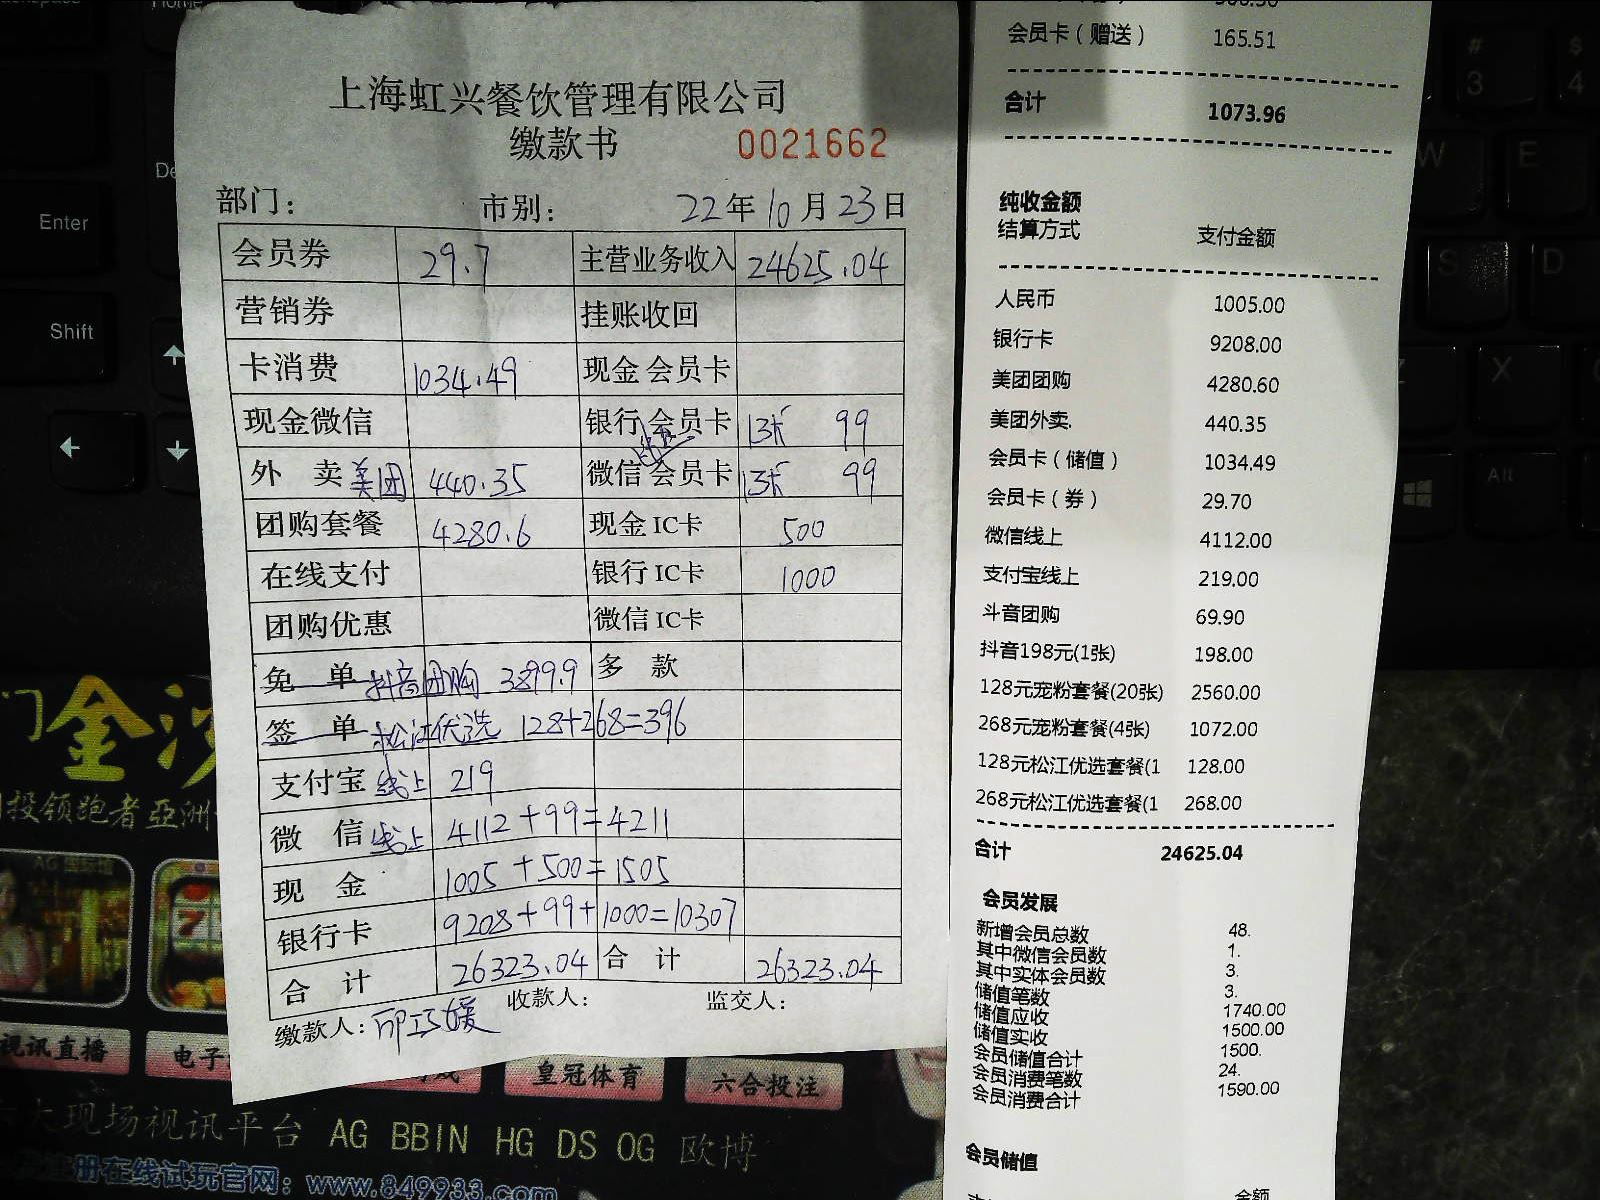 上海虹兴餐饮管理有限公司
缴款书 0021662
部门： 市别： 22年10月23日
会员券 29.7 主营业务收入 24625.04
营销券 挂账收回
卡消费 1034.49 现金会员卡
现金微信 银行会员卡 13张 99
外 卖 美团 440.35 微信会员卡 13张 99
团购套餐 4280.6 现金IC卡 500
在线支付 银行IC卡 1000
团购优惠 微信IC卡
免 单 抖音团购 3899.9 多 款
签 单 松江优选 128+268=396
支付宝 线上 219
微 信 线上 4112+99=4211
现 金 1005+500=1505
银行卡 9208+99+1000=10307
合 计 26323.04 合 计 26323.04
缴款人： 收款人： 监交人：
会员卡（赠送） 165.51
合计 1073.96
纯收金额
结算方式 支付金额
人民币 1005.00
银行卡 9208.00
美团团购 4280.60
美团外卖. 440.35
会员卡（储值） 1034.49
会员卡（券） 29.70
微信线上 4112.00
支付宝线上 219.00
斗音团购 69.90
抖音198元(1张) 198.00
128元宠粉套餐(20张) 2560.00
268元宠粉套餐(4张) 1072.00
128元松江优选套餐(1 128.00
268元松江优选套餐(1 268.00
合计 24625.04
会员发展
新增会员总数 48.
其中微信会员数 1.
其中实体会员数 3.
储值笔数 3.
储值应收 1740.00
储值实收 1500.00
会员储值合计 1500.
会员消费笔数 24.
会员消费合计 1590.00
会员储值
金额
Enter
Shift
Alt
# 3
$ 4
W
E
S
D
X
视讯直播
电子
皇冠体育
六合投注
大现场视讯平台 AG BBIN HG DS OG 欧博
册在线试玩官网：www.849933.com
投领跑者亞洲